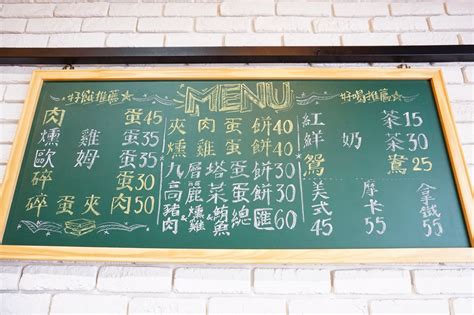 推薦
肉蛋45
燻雞蛋35
歐姆蛋35
碎蛋30
碎蛋夾肉50
MENU
夾肉蛋餅40
燻雞蛋餅40
九層塔蛋餅30
高麗菜蛋餅30
豬肉&燻雞&鮪魚總匯60
好喝推薦
紅茶15
鮮奶茶30
鴛鴦25
美式45
摩卡55
拿鐵55